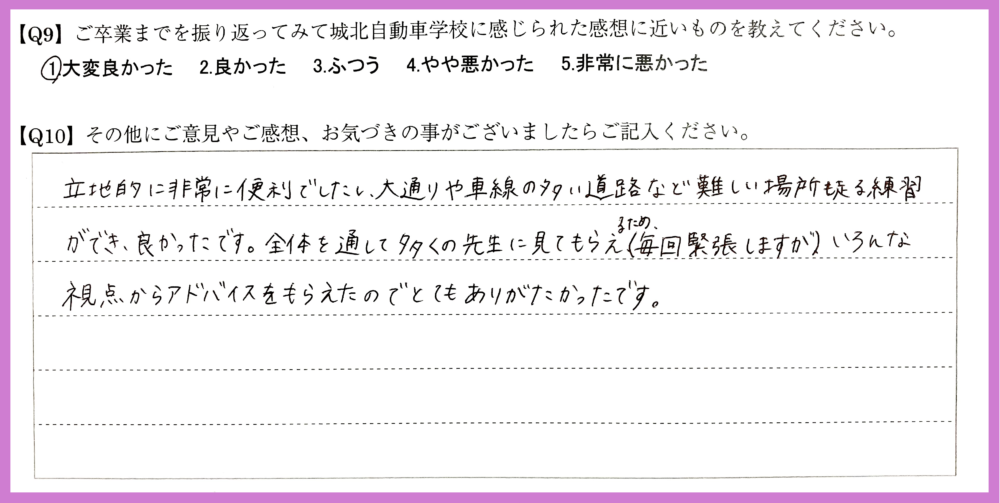 【Q9】ご卒業までを振り返ってみて城北自動車学校に感じられた感想に近いものを教えてください。
①大変良かった 2.良かった 3.ふつう 4.やや悪かった 5.非常に悪かった
【Q10】その他にご意見やご感想、お気づきの事がございましたらご記入ください。
立地的に非常に便利でしたし、大通りや車線の多い道路など難しい場所も走る練習
ができ、良かったです。全体を通して多くの先生に見てもらえるため、(毎回緊張しますが)いろんな
視点からアドバイスをもらえたのでとてもありがたかったです。